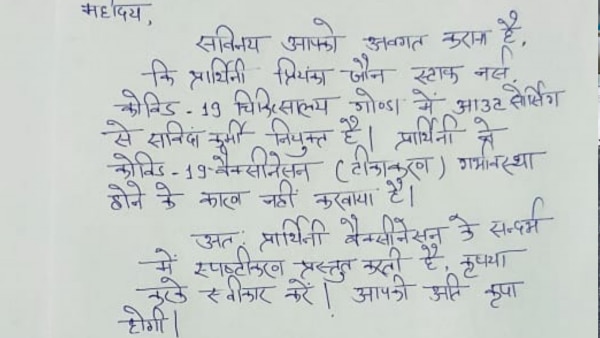 महोदय,
सविनय आपको अवगत कराना है,
कि प्रार्थिनी प्रियंका जौन स्टाफ नर्स,
कोविड-19 चिकित्सालय गोण्डा में आउट सोर्सिंग
से सविदा कर्मी नियुक्त है। प्रार्थिनी ने
कोविड-19-वैक्सीनेसन (टीकाकरण) गर्भावस्था
होने के कारण नहीं करवाया है।
अतः प्रार्थिनी वैक्सीनेसन के सन्दर्भ
में स्पष्टीकरण प्रस्तुत करती है, कृपया
करके स्वीकार करें। आपकी अति कृपा
होगी।